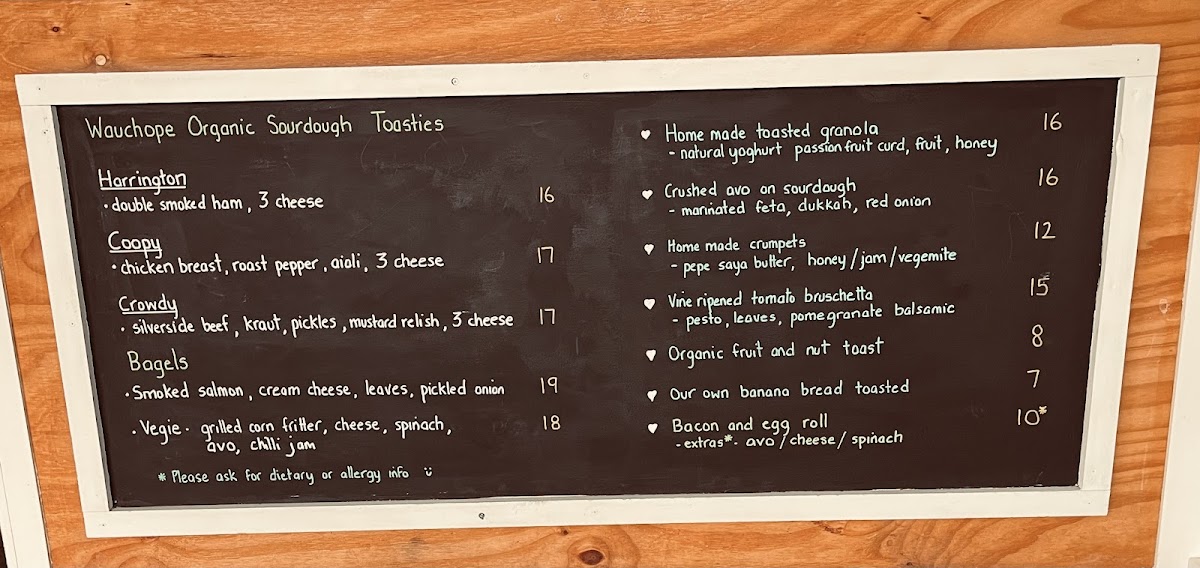 Wauchope Organic Sourdough Toasties
Harrington
• double smoked ham, 3 cheese 16
Coopy
• chicken breast, roast pepper, aioli, 3 cheese 17
Crowdy
• silverside beef, kraut, pickles, mustard relish, 3 cheese 17
Bagels
• Smoked salmon, cream cheese, leaves, pickled onion 19
• Vegie - grilled corn fritter, cheese, spinach, 18
avo, chilli jam
* Please ask for dietary or allergy info ü
♥ Home made toasted granola 16
- natural yoghurt passionfruit curd, fruit, honey
♥ Crushed avo on sourdough 16
- marinated feta, dukkah, red onion
♥ Home made crumpets 12
- pepe saya butter, honey/jam/vegemite
♥ Vine ripened tomato bruschetta 15
- pesto, leaves, pomegranate balsamic
♥ Organic fruit and nut toast 8
♥ Our own banana bread toasted 7
♥ Bacon and egg roll 10*
- extras* - avo/cheese/spinach